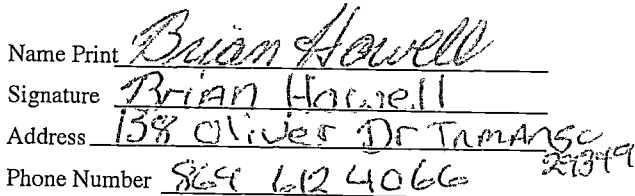 Name Print Brian Howell
Signature Brian Howell
Address 138 Oliver Dr Inman SC
29349
Phone Number 864 612 4066